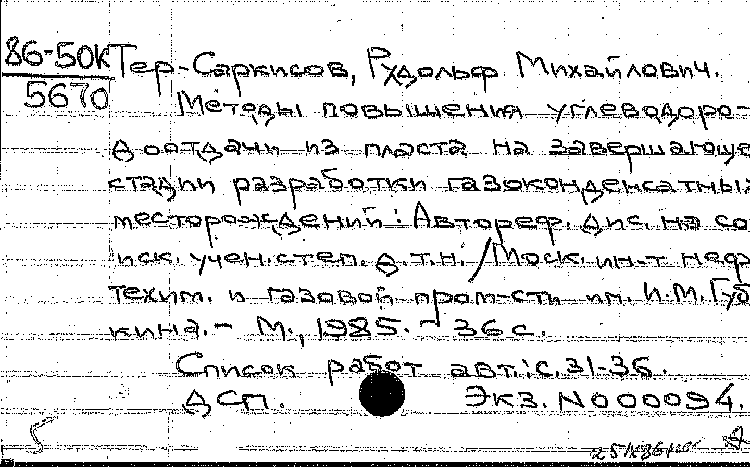 86-50к
5670
Тер-Саркисов, Рудольф Михайлович.
Методы повышения углеводоро-
доотдачи из пласта на завершающе
стадии разработки газоконденсатны
месторождений: Автореф. дис. на со
иск. учен. степ. д.т.н. / Моск. ин-т неф
техим. и газовой пром-сти им. И.М. Губ
кина. - М., 1985. - 36 с.
Список работ авт.: с. 31-36.
ДСП. Экз. N 000094.